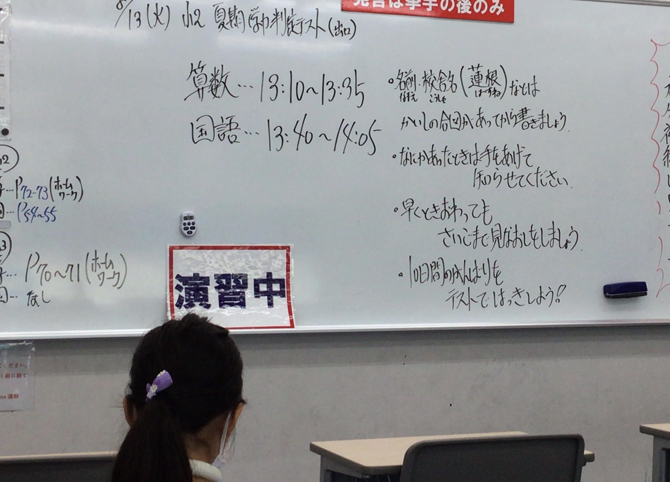 発言は挙手の後のみ
8/13(火) 小2 夏期学力判定テスト
算数…13:10~13:35
国語…13:40~14:05
・名前・校舎名(蓮根)などは
かいしの合図があってから書きましょう。
・なにかあったときは手をあげて
知らせてください。
・早くときおわっても
さいごまで見なおしをしましょう。
・10日間のがんばりを
テストではっきしよう!!
P72-73(ホームワーク)
P54~55
P70~71(ホームワーク)
なし
演習中